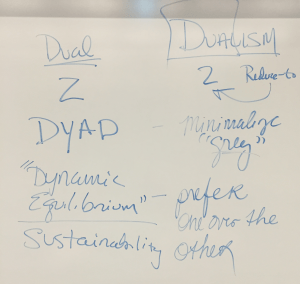 Dual
2
DYAD
"Dynamic
Equilibrium"
Sustainability
DUALISM
2 Reduce-to
- minimalize
"Grey"
- prefer
one over the
other